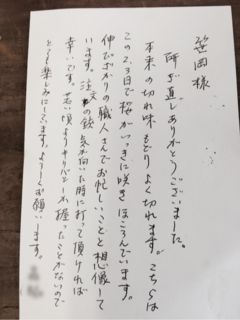 笹岡様
研ぎ直しありがとうございました。
本来の切れ味もどりよく切れます。こちらは
この2,3日で桜がいっきに咲きほころんでいます。
伸びざかりの職人さんでお忙しいことと想像して
います。注文の鋏気が向いた時に打って頂ければ
幸いです。若い頃よりキリバシーか握ったことがないので
とても楽しみにしています。よろしくお願いします。